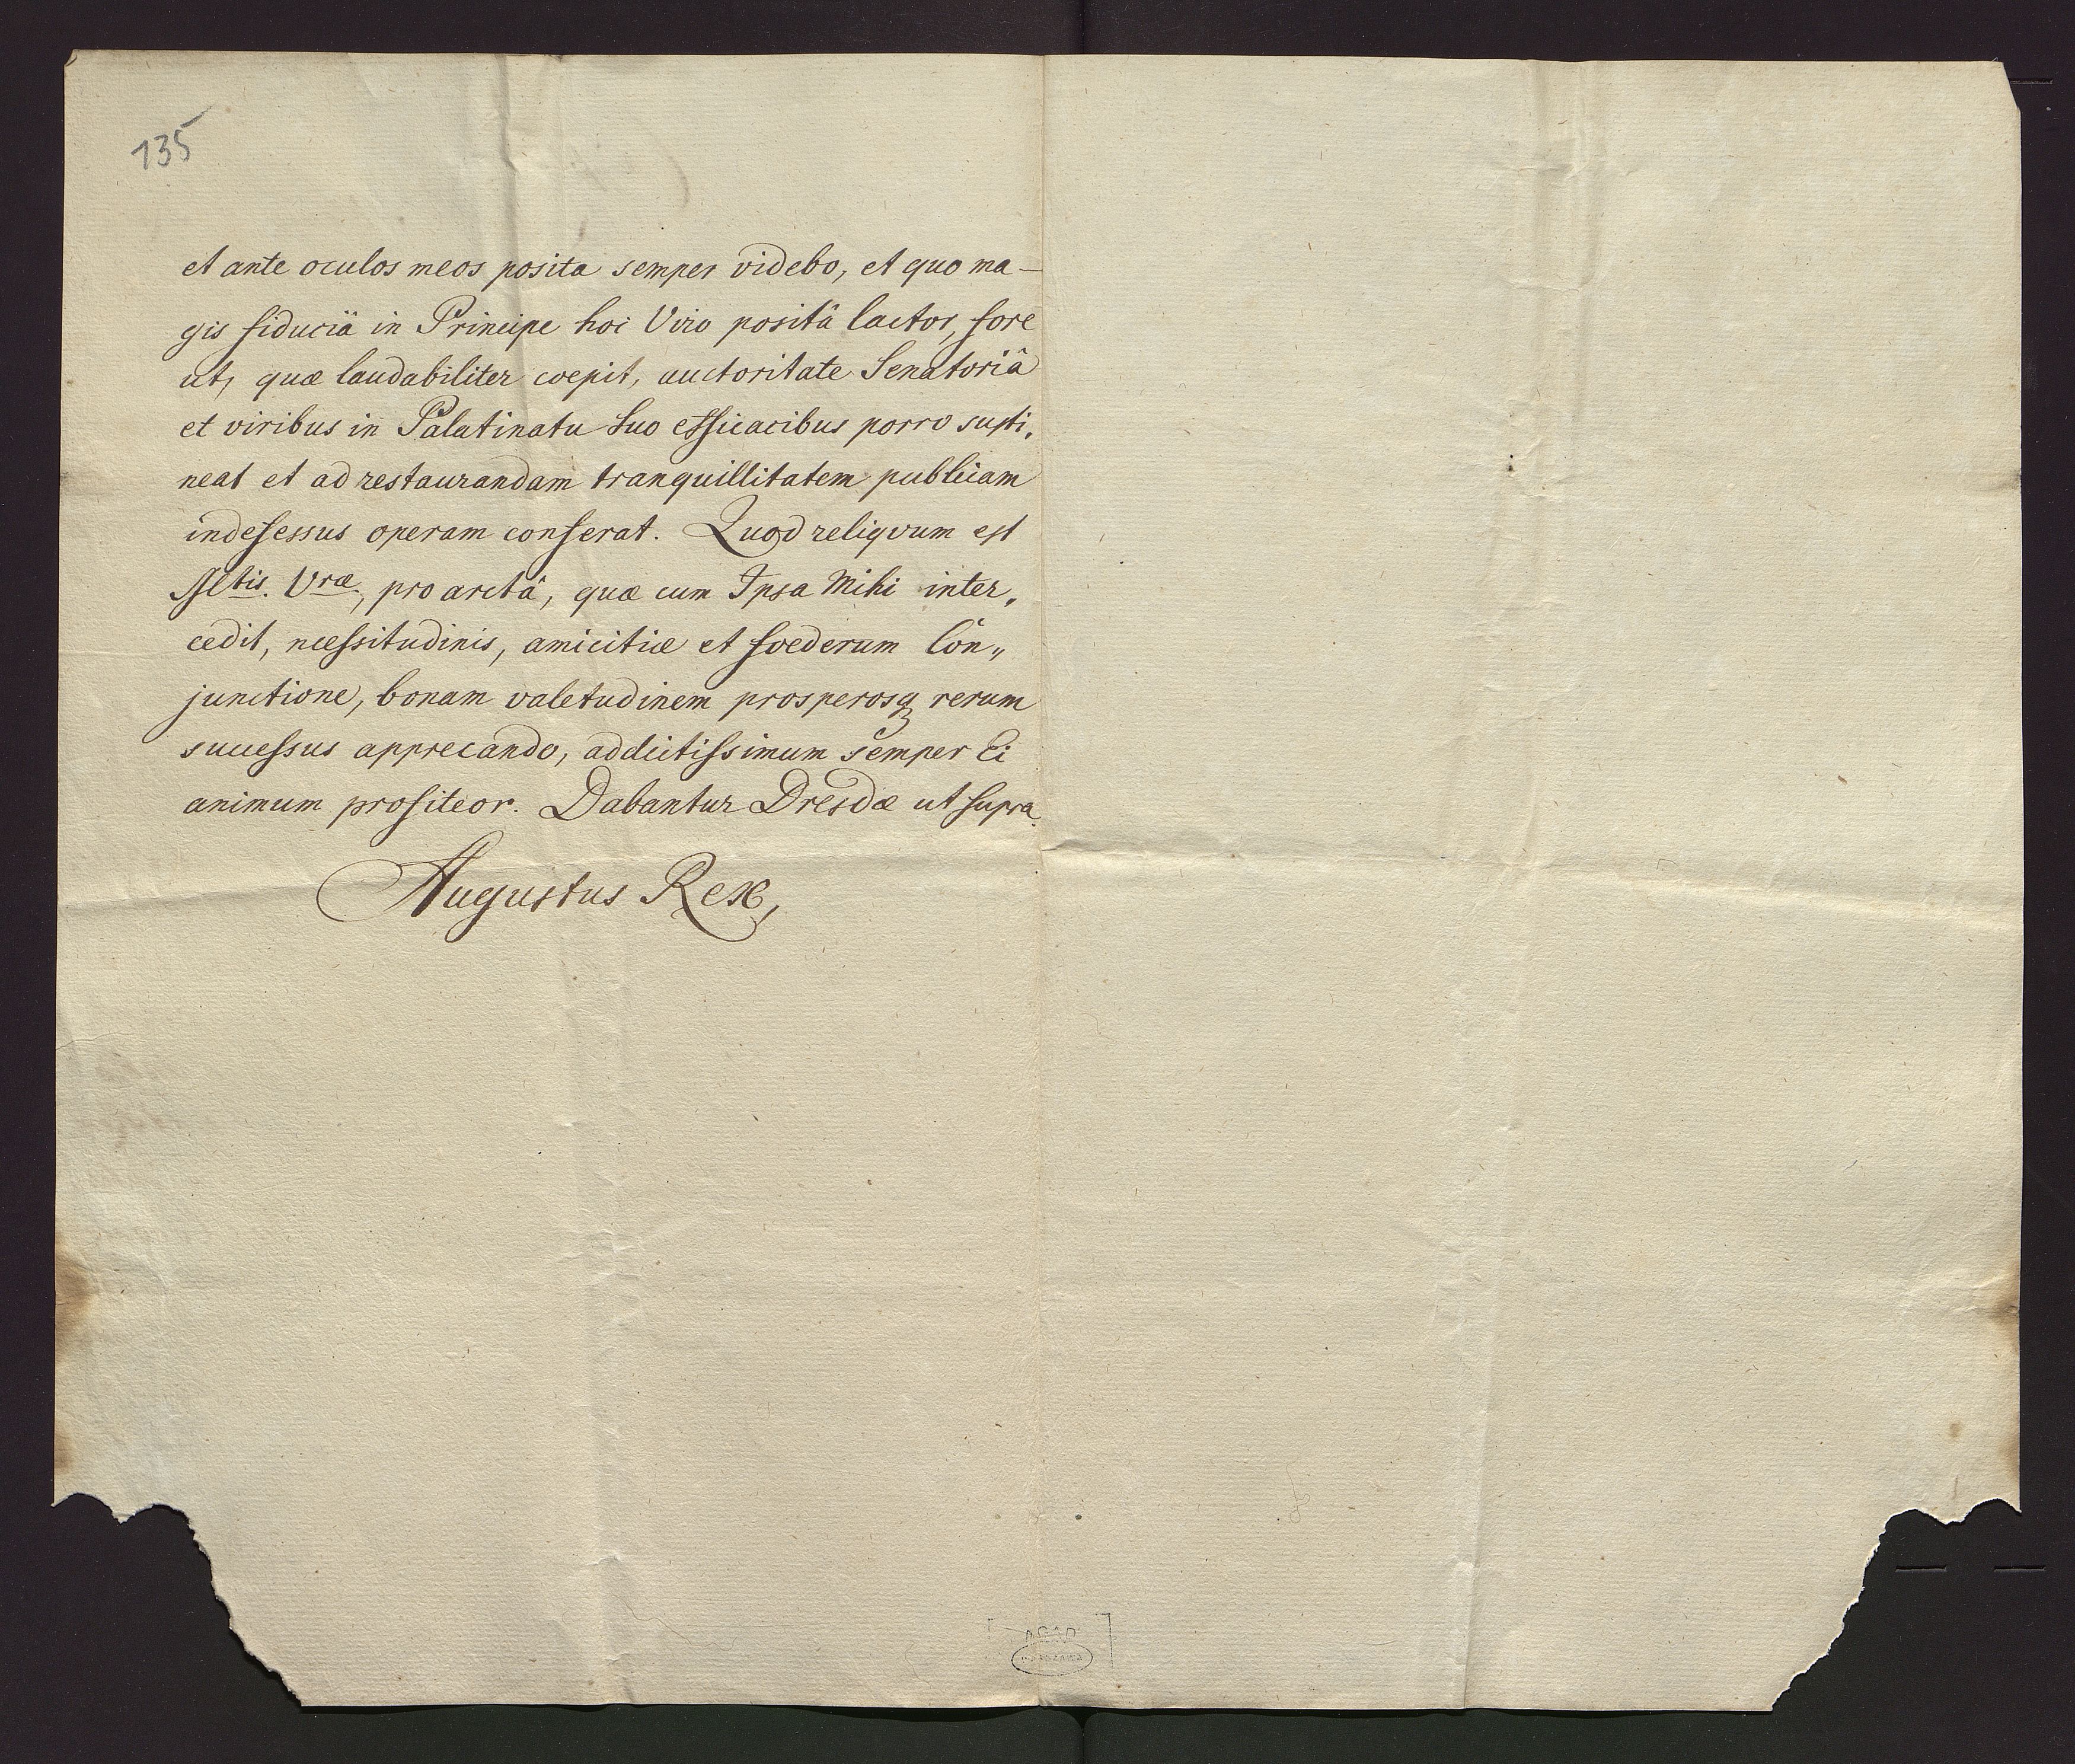 135
et ante oculos meos posita semper videbo, et quo ma-
gis fiduciâ in Principe hoc Viro positâ lactor, fore
ut, quæ laudabiliter coepit, auctoritate Senatoriâ
et viribus in Palatinatu Suo efficacibus porro susti„
neat et ad restaurandam tranquillitatem publicam
indefessus operam conferat. Quod reliqvum est
Sltis. Vræ, pro arctâ, quæ cum Ipsa Mihi inter„
cedit, necessitudinis, amicitiæ et foederum Con„
junctione, bonam valetudinem prosperosq rerum
successus apprecando, addictissimum semper Ei
animum profiteor. Dabantur Dresdæ ut supra.
Augustus Rex,